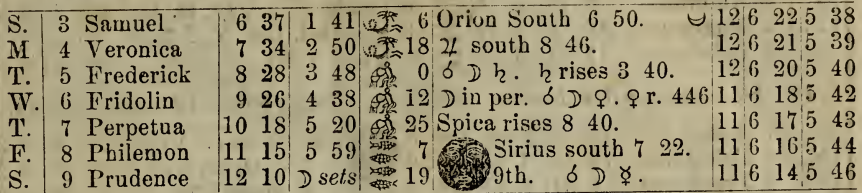 S. 3 Samuel 6 37 1 41 6 Orion South 6 50. 12 6 22 5 38
M 4 Veronica 7 34 2 50 18 ♃ south 8 46. 12 6 21 5 39
T. 5 Frederick 8 28 3 48 0 ☌ ☽ ♄. ♄ rises 3 40. 12 6 20 5 40
W. 6 Fridolin 9 26 4 38 12 ☽ in per. ☌ ☽ ♀. ♀ r. 446 11 6 18 5 42
T. 7 Perpetua 10 18 5 20 25 Spica rises 8 40. 11 6 17 5 43
F. 8 Philemon 11 15 5 59 7 Sirius south 7 22. 11 6 16 5 44
S. 9 Prudence 12 10 ☽ sets 19 9th. ☌ ☽ ☿. 11 6 14 5 46